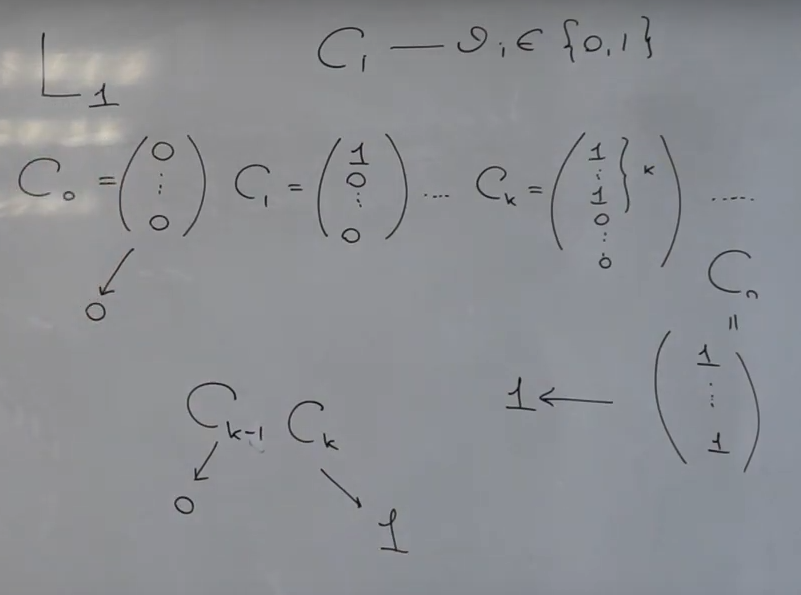 L₁
C₁ — ϑ₁ ∈ {0,1}
C₀ = (0 ⋮ 0) C₁ = (1 0 ⋮ 0) ... Cₖ = (1 ⋮ 1 } k 0 ⋮ 0) .....
0
Cₙ
=
(1 ⋮ 1)
1 ←
Cₖ₋₁ Cₖ
0
1